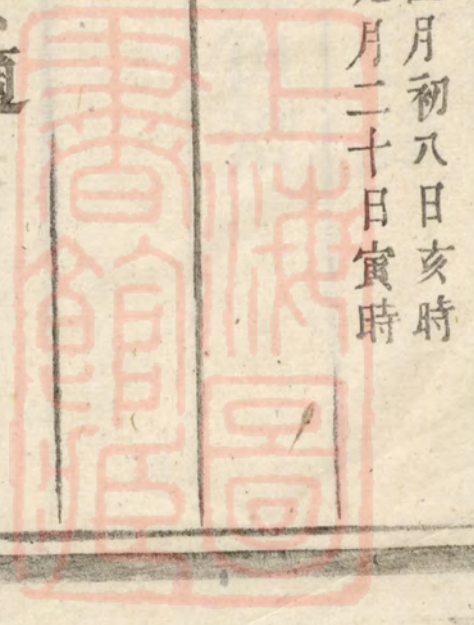 月初八日亥時
月二十日寅時
上海圖
書館藏